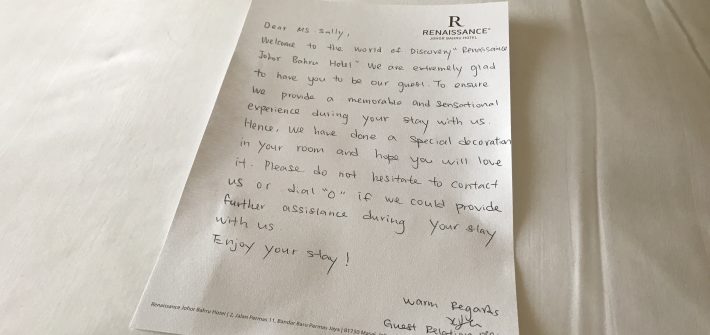 R
RENAISSANCE®
JOHOR BAHRU HOTEL
Dear Ms Sally,
Welcome to the world of Discovery "Renaissance
Johor Bahru Hotel" We are extremely glad
to have you to be our guest. To ensure
we provide a memorable and sensational
experience during your stay with us.
Hence, we have done a special decoration
in your room and hope you will love
it. Please do not hesitate to contact
us or dial "0" if we could provide
further assistance during your stay
with us
Enjoy your stay!
Warm Regards
Guest Relation
Renaissance Johor Bahru Hotel | 2, Jalan Permas 11, Bandar Baru Permas Jaya | 81750